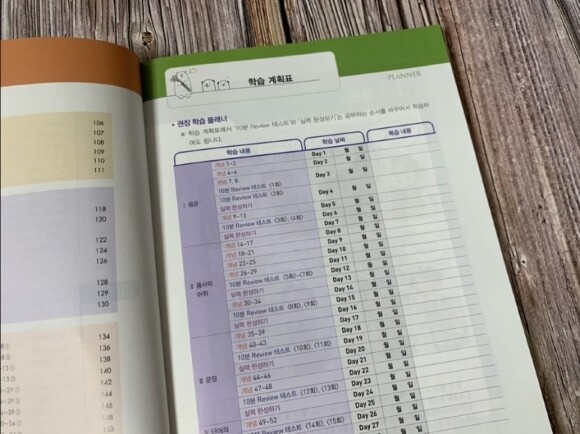 학습 계획표
PLANNER
• 권장 학습 플래너
※ 학습 계획표에서 '10분 Review 테스트'와 '실력 완성하기'는 공부하는 순서를 바꾸어서 학습하
여도 됩니다.
학습 내용 학습 날짜 복습 내용
개념 1~3 Day 1 월 일
개념 4~6 Day 2 월 일
개념 7, 8 Day 3 월 일
10분 Review 테스트 (1회)
10분 Review 테스트 (2회) Day 4 월 일
실력 완성하기
Ⅰ 음운
개념 9~13 Day 5 월 일
10분 Review 테스트 (3회), (4회) Day 6 월 일
실력 완성하기 Day 7 월 일
개념 14~17 Day 8 월 일
개념 18~21 Day 9 월 일
개념 22~25 Day 10 월 일
개념 26~29 Day 11 월 일
Ⅱ 품사와
어휘
10분 Review 테스트 (5회)~(7회) Day 12 월 일
실력 완성하기 Day 13 월 일
개념 30~34 Day 14 월 일
10분 Review 테스트 (8회), (9회) Day 15 월 일
실력 완성하기 Day 16 월 일
개념 35~39 Day 17 월 일
개념 40~43 Day 18 월 일
10분 Review 테스트 (10회), (11회) Day 19 월 일
Ⅲ 문장
실력 완성하기 Day 20 월 일
개념 44~46 Day 21 월 일
개념 47~48 Day 22 월 일
10분 Review 테스트 (12회), (13회) Day 23 월 일
실력 완성하기 Day 24 월 일
개념 49~52 Day 25 월 일
10분 Review 테스트 (14회), (15회) Day 26 월 일
Day 27 월 일
106
107
108
109
110
111
118
120
122
124
126
128
129
130
134
138
140
142